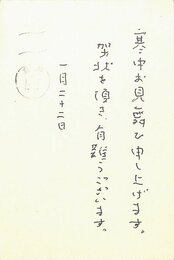 寒中お見舞い申し上げます。
賀状を頂き有難うございます。
一月二十二日